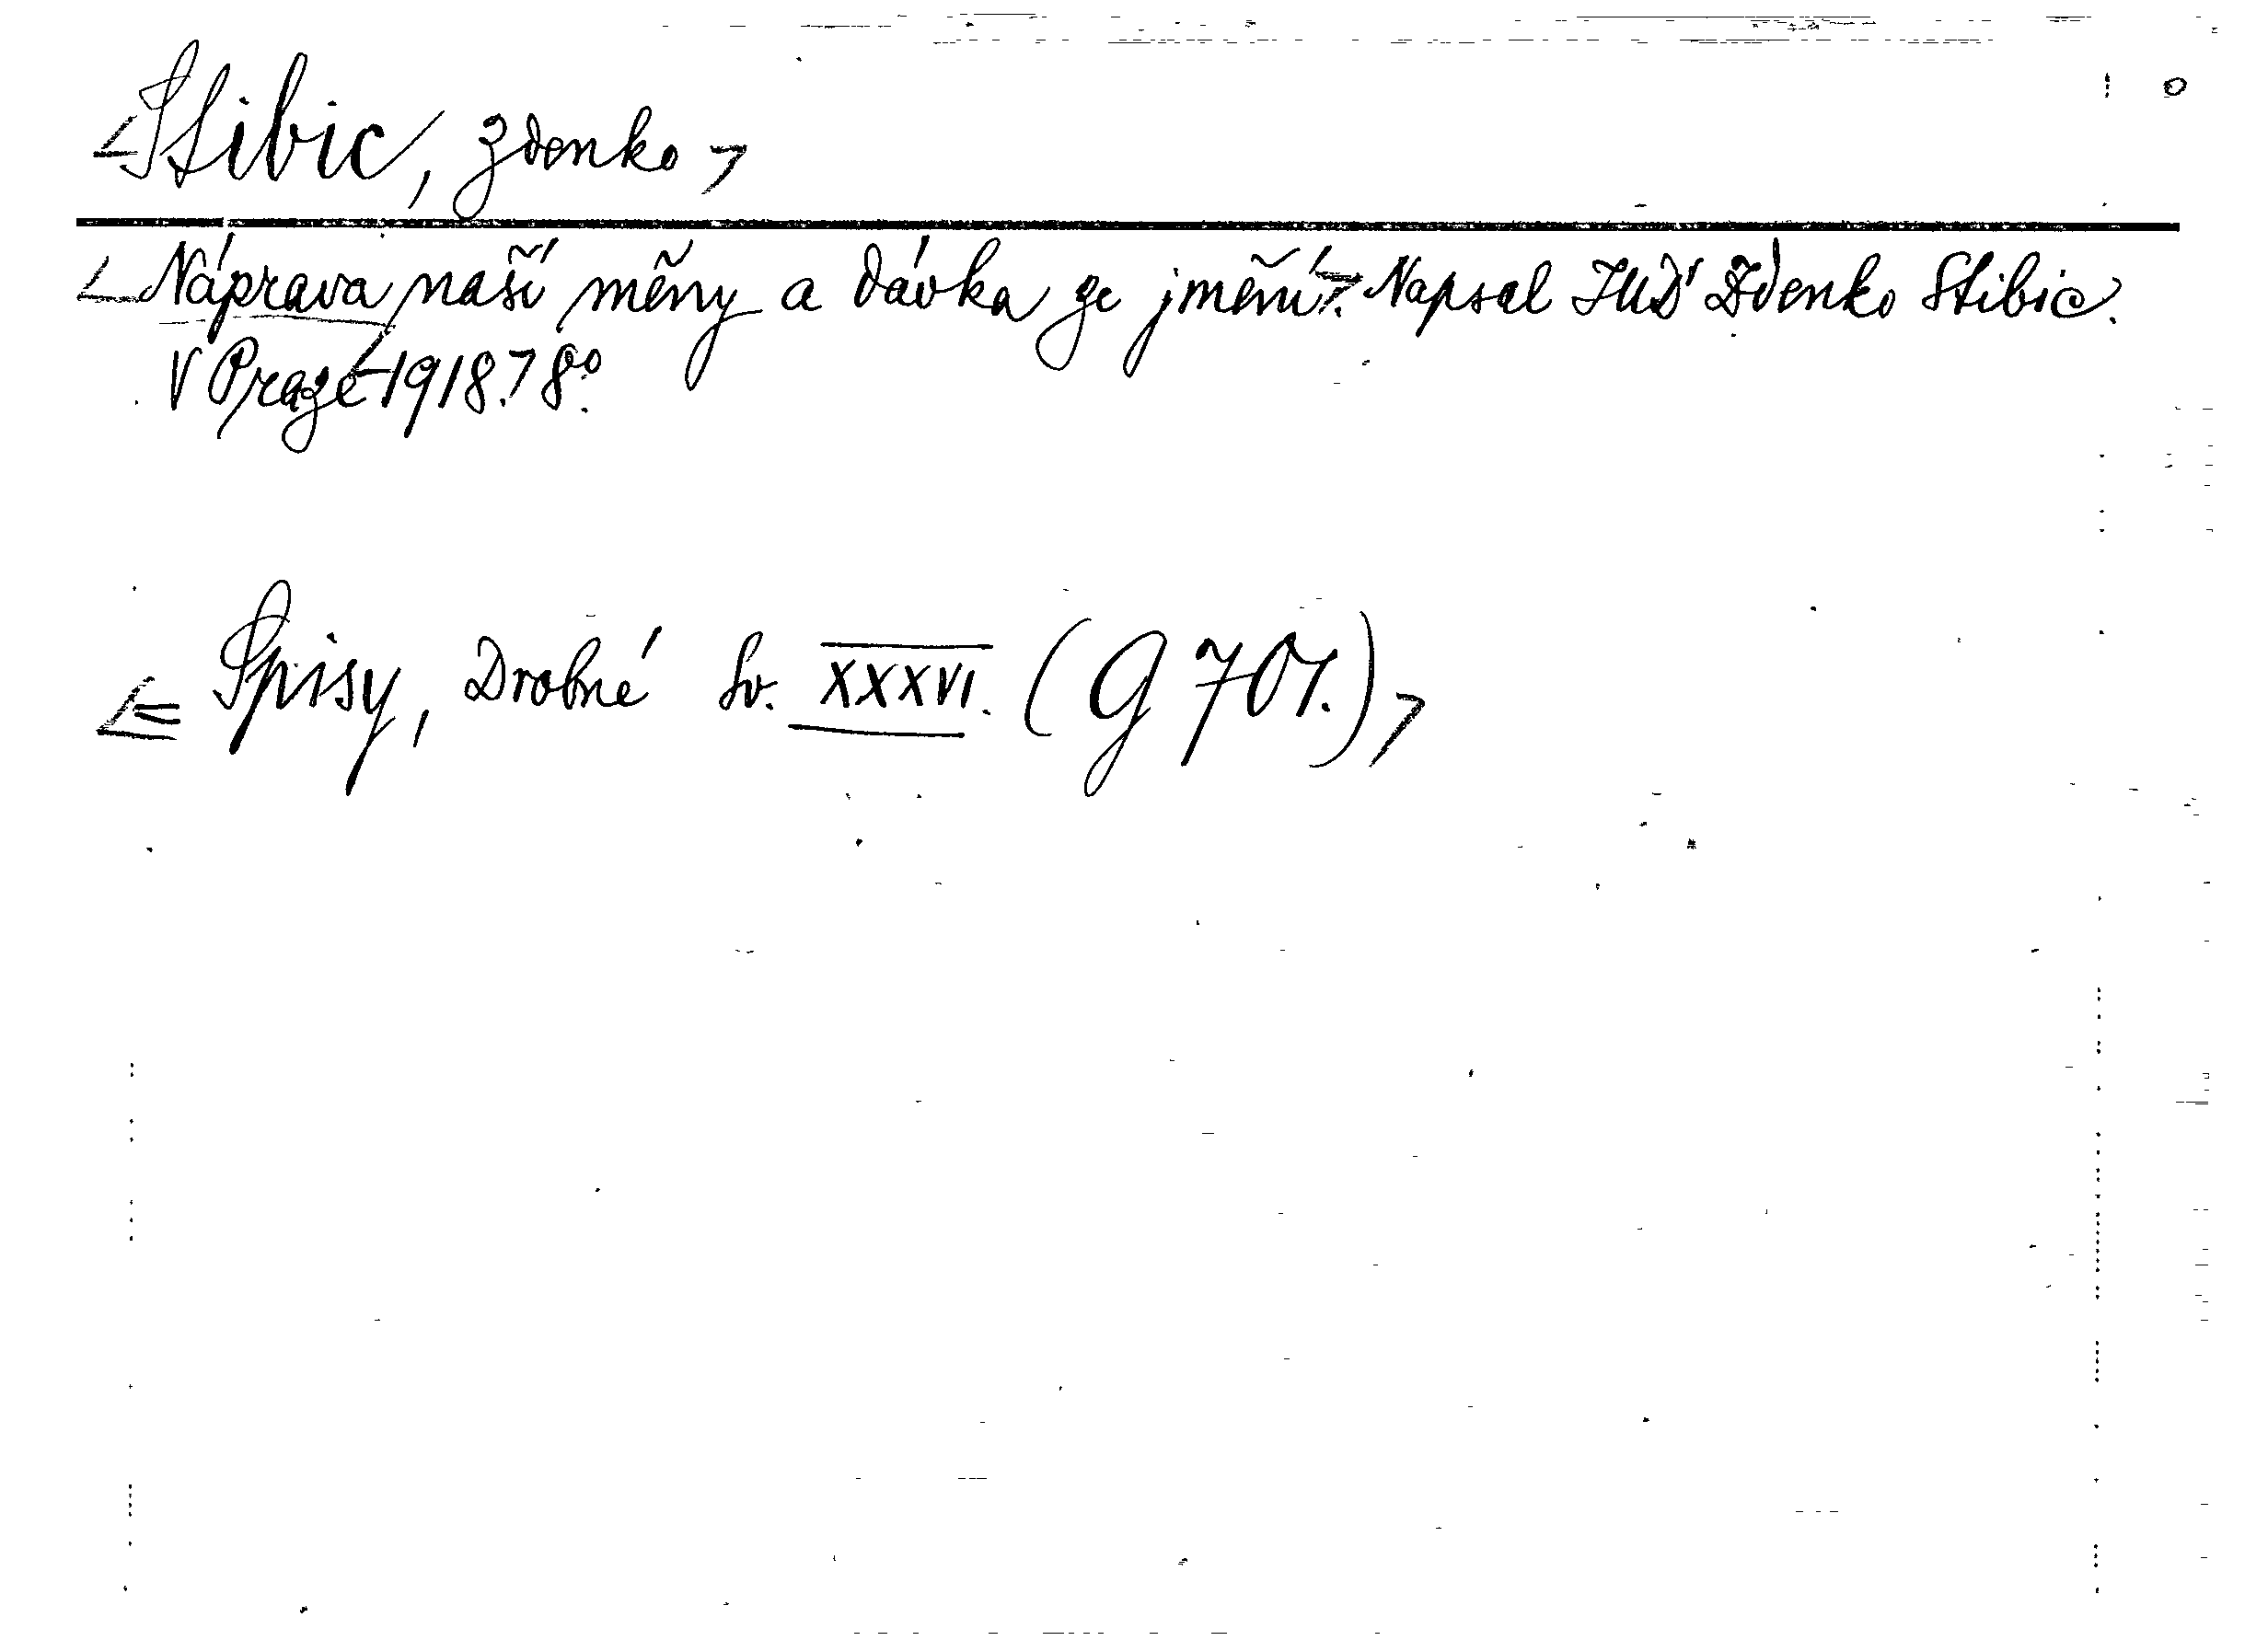 <Stibic, Zdenko>
<Náprava naší měny a dávka ze jmění>. Napsal JUDr Zdenko Stibic.
V Praze <1918.> 8º.
<= Spisy, Drobné Sv. XXXVI. (G 701.)>